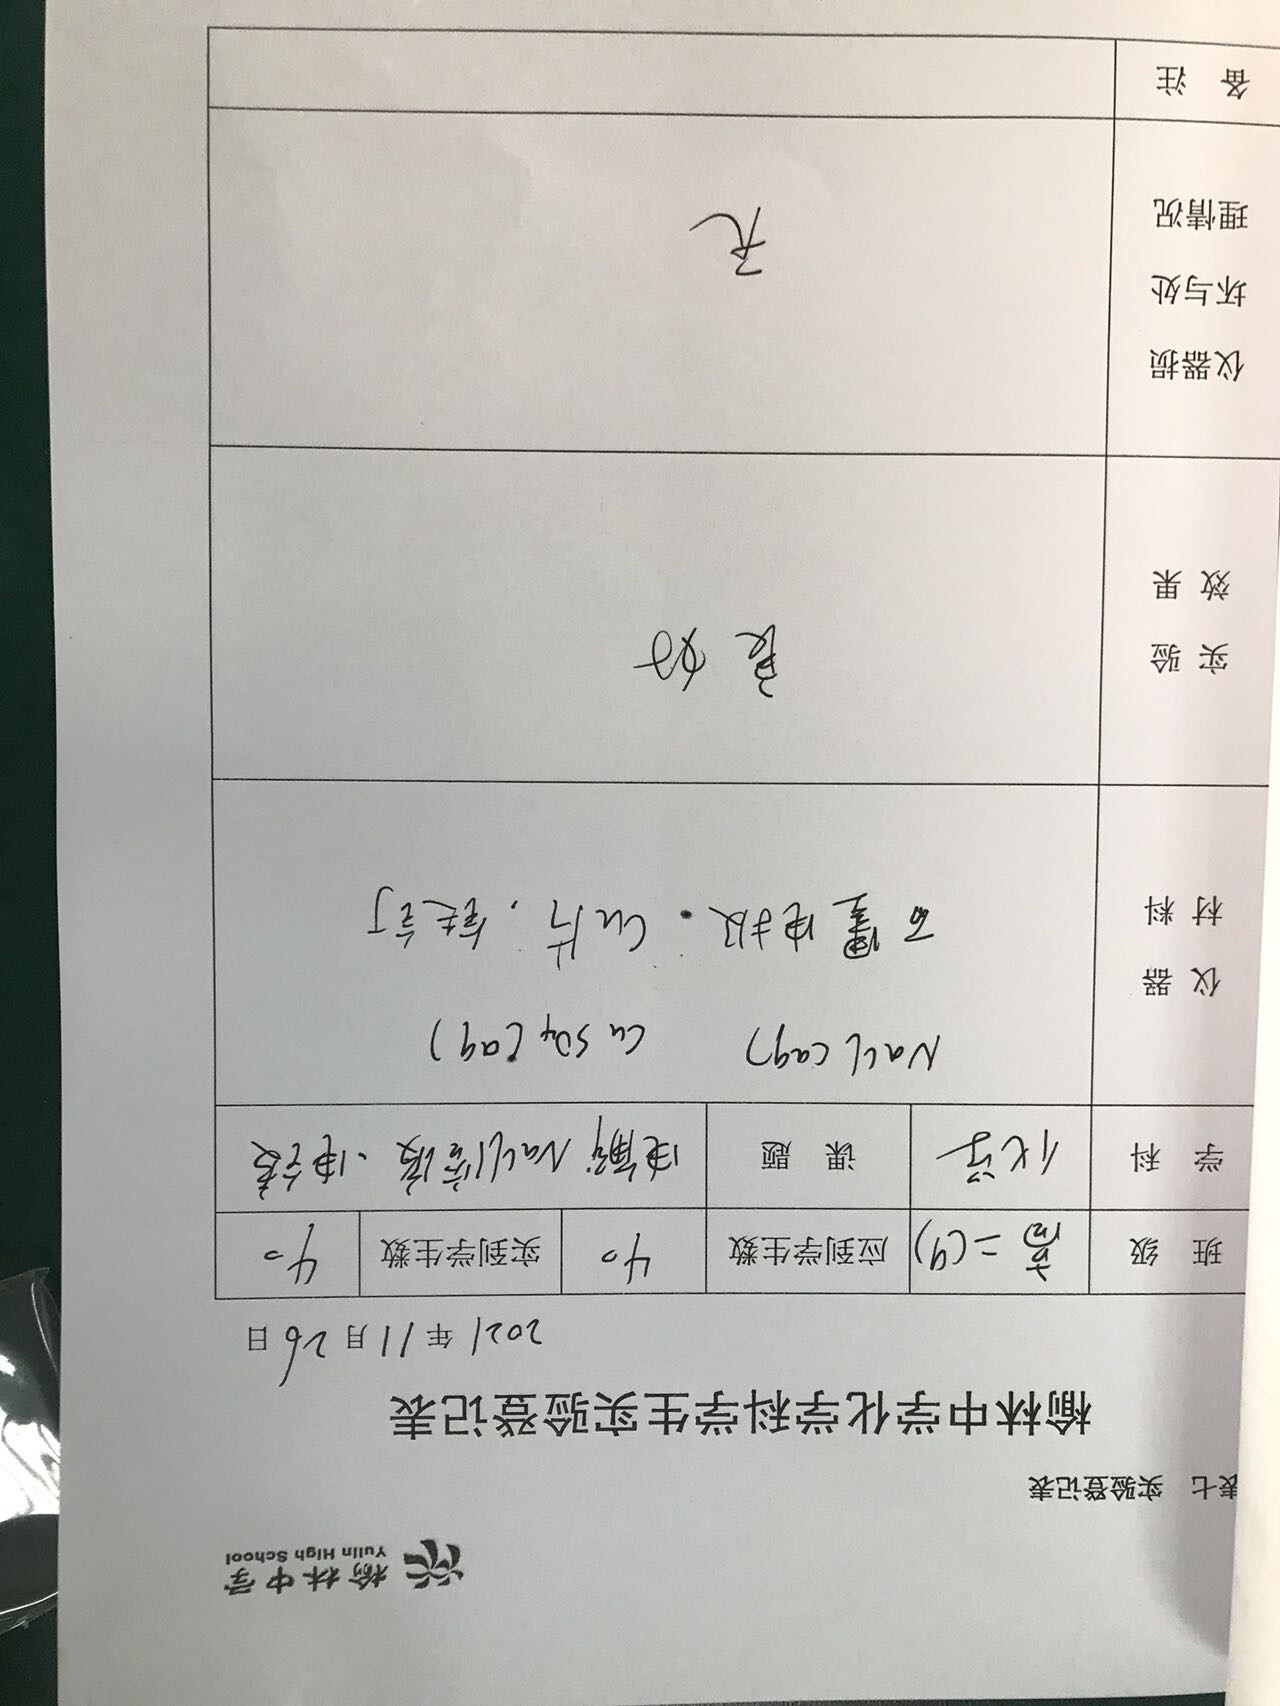 榆林中学
Yulin High School
表七 实验登记表
榆林中学化学科学生实验登记表
2021年11月26日
班 级 高二(9) 应到学生数 40 实到学生数 40
学 科 化学 课 题 电解NaCl溶液、电镀
仪 器 材 料
NaCl(aq) CuSO4(aq)
石墨电极. Cu片, 铁钉
实 验 效 果 良好
仪器损坏与处理情况 无
备 注